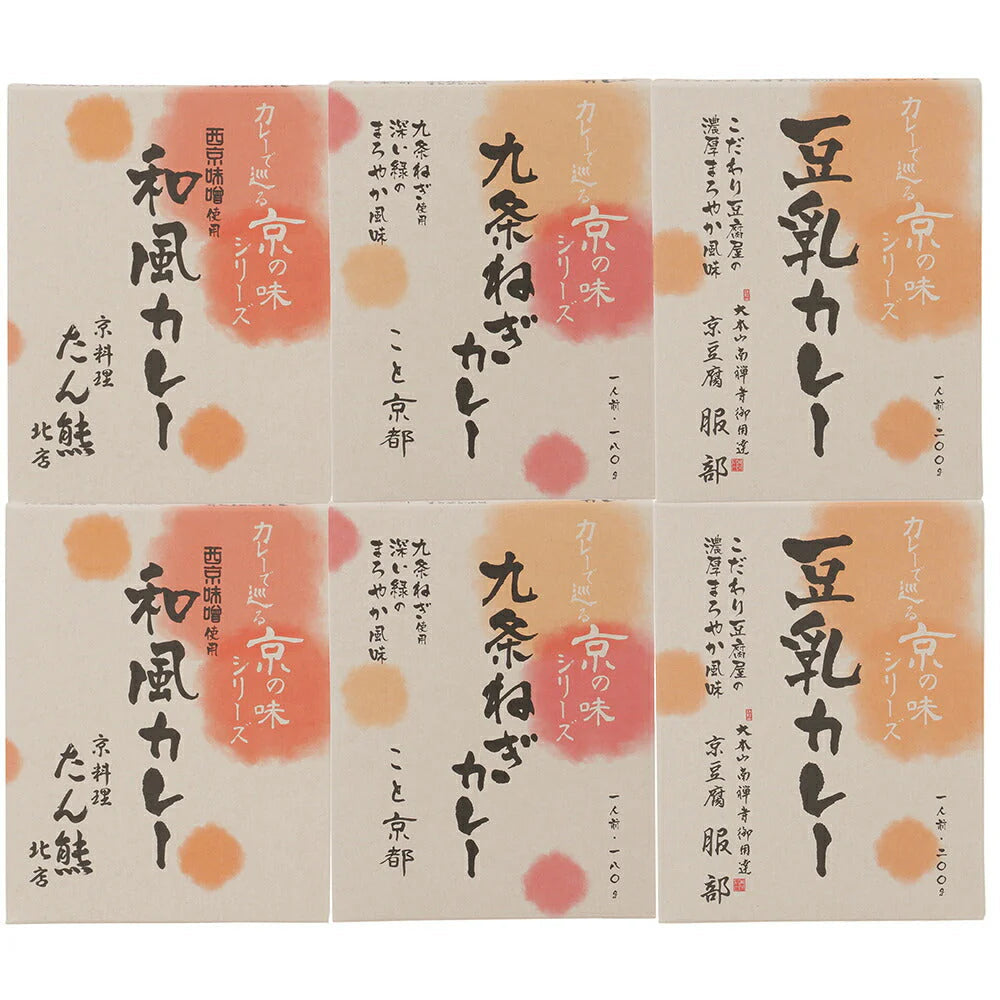 カレーで巡る
京の味
シリーズ
西京味噌使用
和風カレー
京料理
たん熊
北店
カレーで巡る
京の味
シリーズ
九条ねぎカレー
九条ねぎ使用
深い緑の
まろやか風味
こと京都
一人前・一八〇g
カレーで巡る
京の味
シリーズ
豆乳カレー
こだわり豆腐屋の
濃厚まろやか風味
大本山南禅寺御用達
京豆腐 服部
一人前・二〇〇g
カレーで巡る
京の味
シリーズ
西京味噌使用
和風カレー
京料理
たん熊
北店
カレーで巡る
京の味
シリーズ
九条ねぎカレー
九条ねぎ使用
深い緑の
まろやか風味
こと京都
一人前・一八〇g
カレーで巡る
京の味
シリーズ
豆乳カレー
こだわり豆腐屋の
濃厚まろやか風味
大本山南禅寺御用達
京豆腐 服部
一人前・二〇〇g